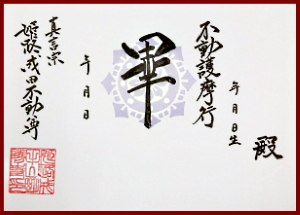 殿
年月日生
不動護摩行
畢
年月日
真言宗
姫路成田不動尊